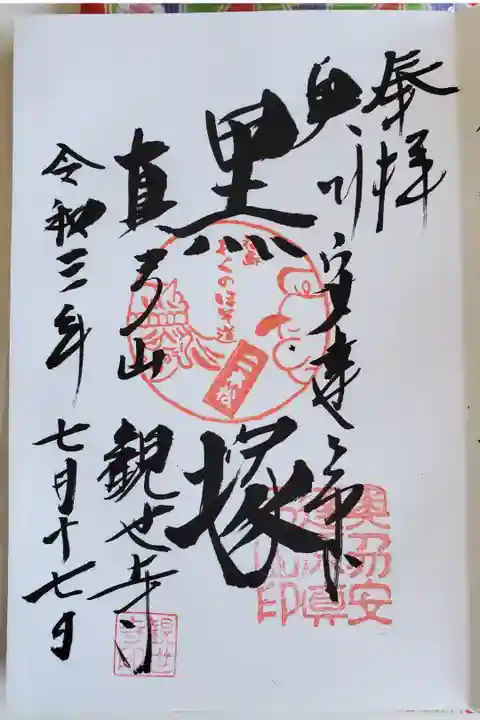 奉拝
奥州安達ヶ原
黒塚
真弓山
観世寺
令和三年七月十七日
おくのほそ道
二本松
観世寺印